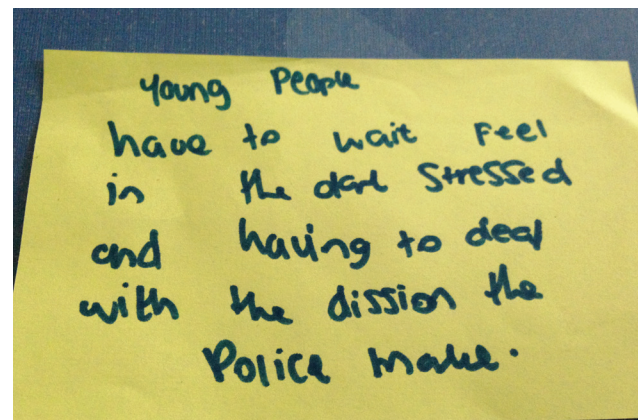 young People
have to wait Feel
in the dark Stressed
and having to deal
with the dission the
Police make.